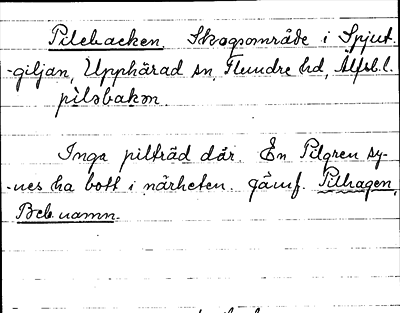 Pilebacken. Skogsområde i Spjut-
-giljan, Upphärad sn, Flundre hd, Älfsb. l.
pilobakən.
Inga pilträd där. En Pilgren sy-
-nes ha bott i närheten. Jämf. Pilhagen,
Beb. namn.